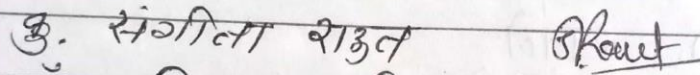 कु. संगीता राऊत SRaut